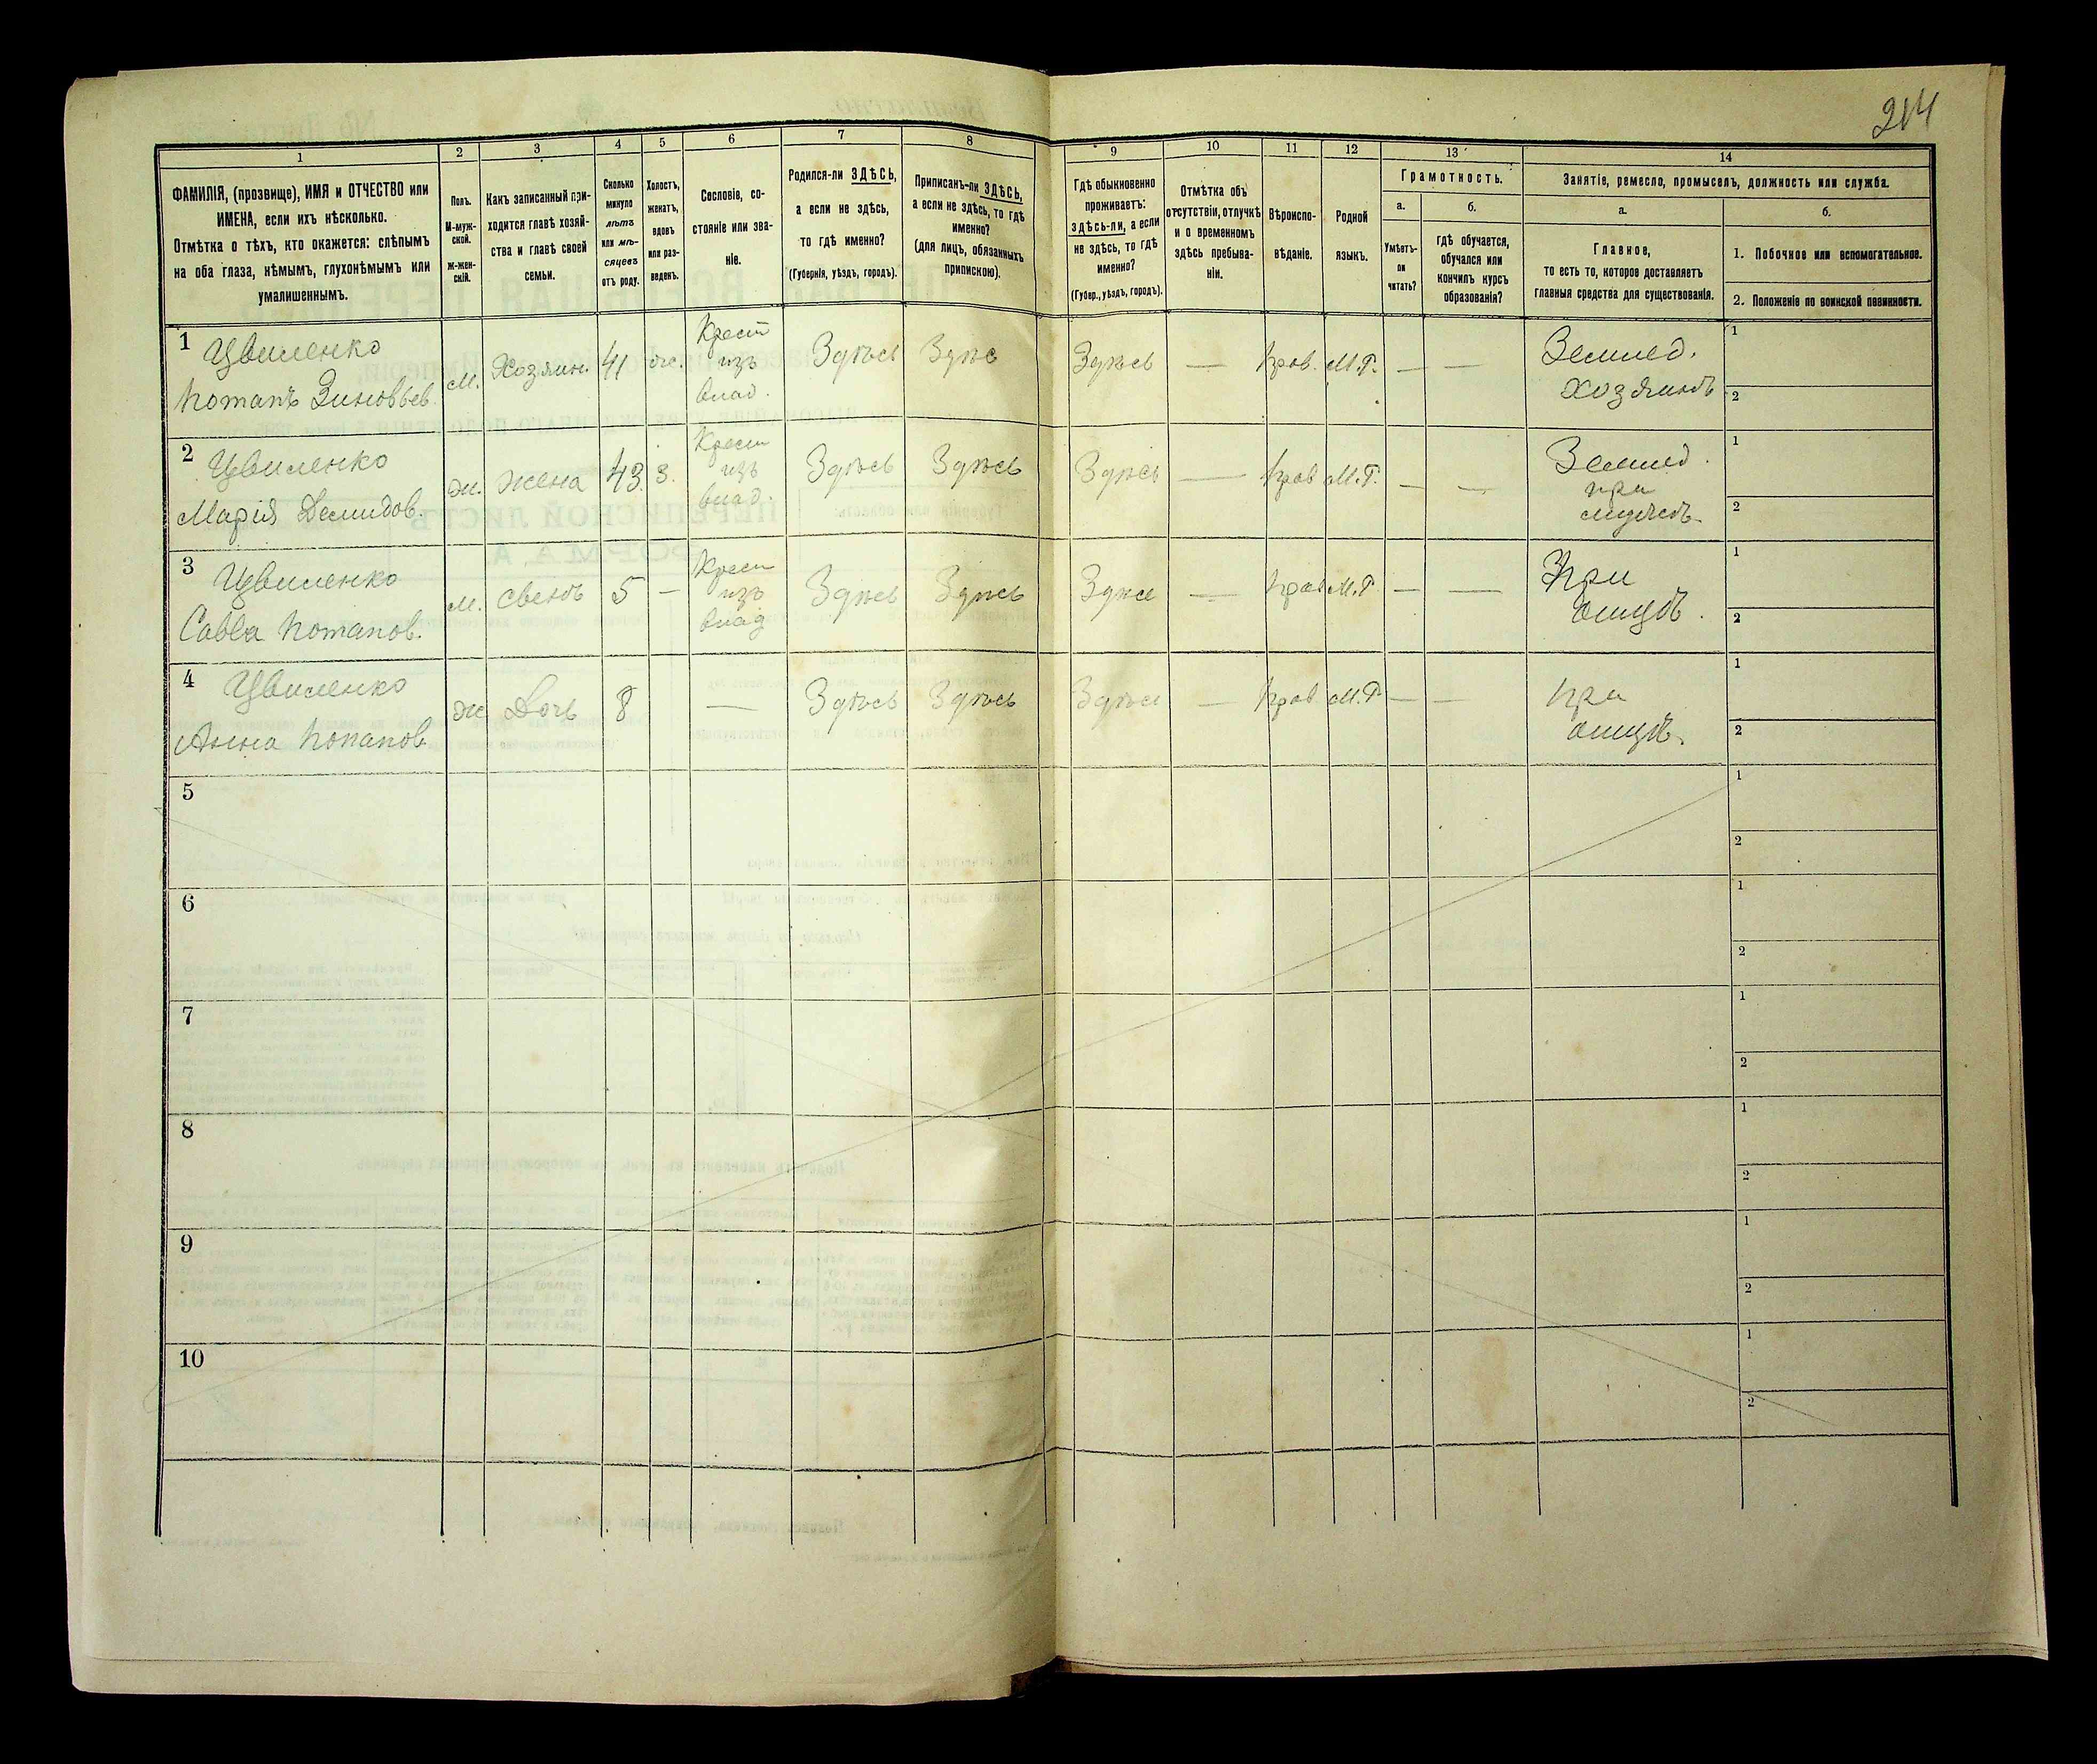 214
1
2
3
4
5
6
7
8
9
10
11
12
13
14
ФАМИЛІЯ, (прозвище), ИМЯ и ОТЧЕСТВО или
ИМЕНА, если ихъ нѣсколько.
Отмѣтка о тѣхъ, кто окажется: слѣпымъ
на оба глаза, нѣмымъ, глухонѣмымъ или
умалишеннымъ.
Полъ.
М-муж-
ской.
ж-жен-
скій.
Какъ записанный при-
ходится главѣ хозяй-
ства и главѣ своей
семьи.
Сколько
минуло
лѣтъ
или мѣ-
сяцевъ
отъ роду.
Холостъ,
женатъ,
вдовъ
или раз-
веденъ.
Сословіе, со-
стояніе или зва-
ніе.
Родился-ли ЗДѢСЬ,
а если не здѣсь,
то гдѣ именно?
(Губернія, уѣздъ, городъ).
Приписанъ-ли ЗДѢСЬ,
а если не здѣсь, то гдѣ
именно?
(для лицъ, обязанныхъ
припискою).
Гдѣ обыкновенно
проживаетъ:
здѣсь-ли, а если
не здѣсь, то гдѣ
именно?
(Губер., уѣздъ, городъ).
Отмѣтка объ
отсутствіи, отлучкѣ
и о временномъ
здѣсь пребыва-
ніи.
Вѣроиспо-
вѣданіе.
Родной
языкъ.
Грамотность.
а.
Умѣетъ-
ли
читать?
б.
гдѣ обучается,
обучался или
кончилъ курсъ
образованія?
Занятіе, ремесло, промыселъ, должность или служба.
а.
Главное,
то есть то, которое доставляетъ
главныя средства для существованія.
б.
1. Побочное или вспомогательное.
2. Положеніе по воинской повинности.
1 Цвиленко
Потапъ Зиновьев
м. Хозяин. 41 же.
Крест
изъ
влад.
Здѣсь Здѣс Здѣсь — Прав. М.Р. — —
Земled.
хозяинъ
1
2
2 Цвиленко
Марія Демидов.
ж. жена 43 з.
Крест
изъ
влад.
Здѣсь Здѣсь Здѣсь — Прав М.Р. — —
Землед.
при
1
2
3 Цвиленко
Савва Потапов.
м. 5 —
Крест
изъ
влад
Здѣсь Здѣсь — Прав М.Р — —
При
отцѣ.
1
2
4 Цвиленко
Анна Попапов
ж Дочь 8 — Здѣсь Здѣсь Здѣсь — Прав. М.Р — —
при
отцѣ.
1
2
5
1
2
6
1
2
7
1
2
8
1
2
9
1
2
10
1
2